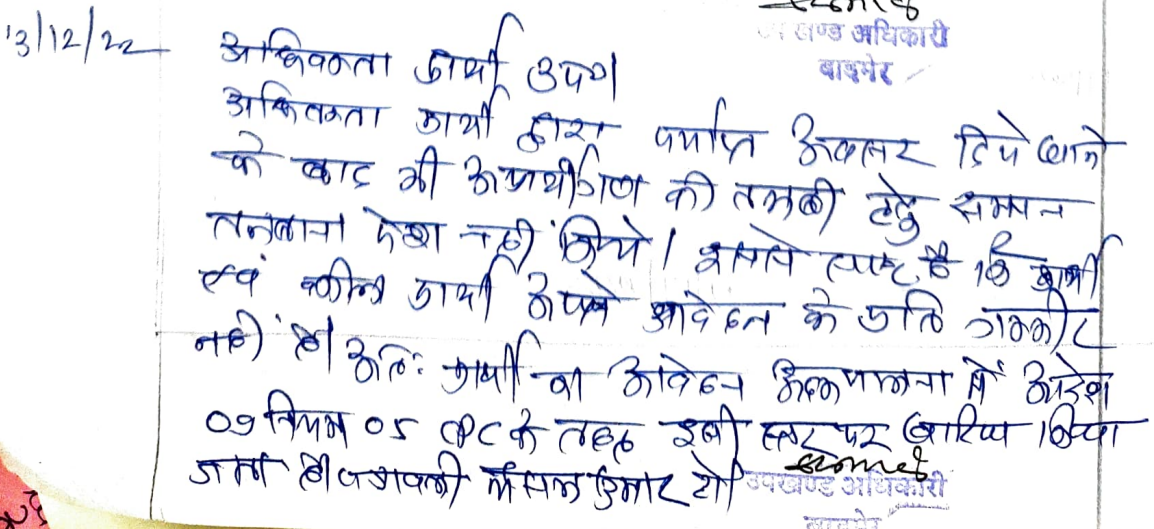 उपखण्ड अधिकारी
बाड़मेर
13/12/22 अधिवक्ता प्रार्थी उप०।
अधिवक्ता प्रार्थी द्वारा पर्याप्त अवसर दिये जाने
के बाद भी अप्रार्थीगण की तलबी हेतु सम्मन
तलबाना पेश नहीं किये। इससे स्पष्ट है कि प्रार्थी
एवं वकील प्रार्थी अपने आवेदन के प्रति गम्भीर
नहीं है। अतः प्रार्थी का आवेदन अदमपालना में आदेश
09 नियम 05 CPC के तहत इसी स्तर पर खारिज किया
जाता है। पत्रावली फैसल शुमार हो।
उपखण्ड अधिकारी
बाड़मेर